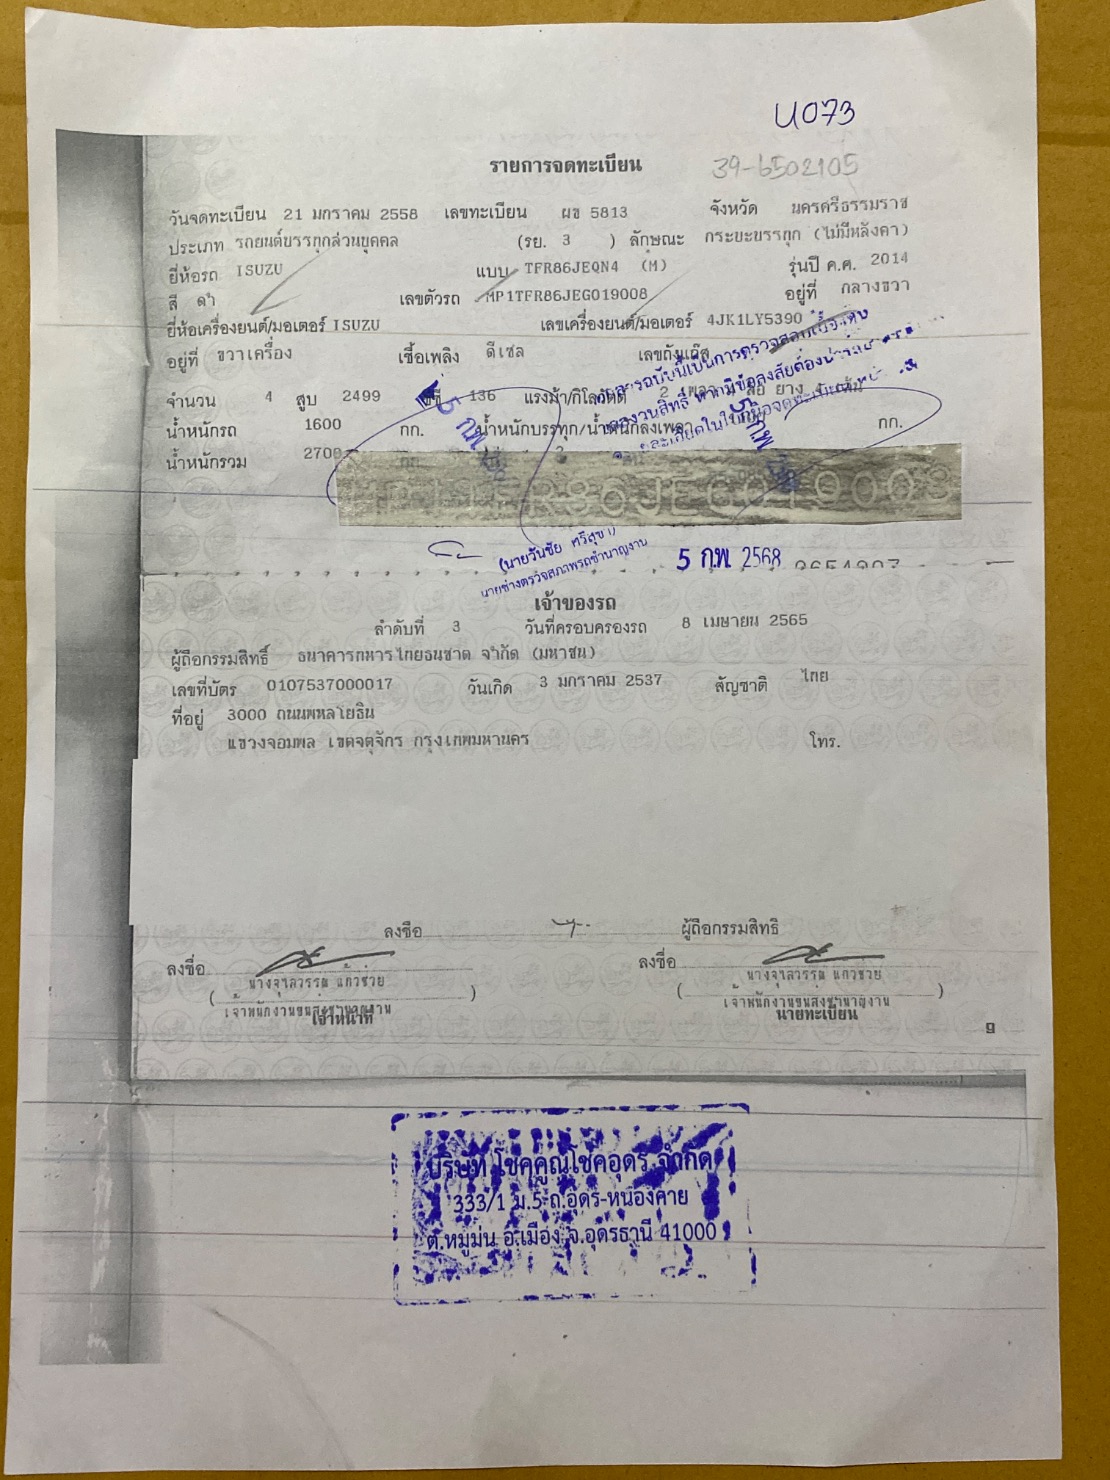 U073
39-6502105
รายการจดทะเบียน
วันจดทะเบียน 21 มกราคม 2558 เลขทะเบียน ผข 5813 จังหวัด นครศรีธรรมราช
ประเภท รถยนต์บรรทุกส่วนบุคคล (รย. 3 ) ลักษณะ กระบะบรรทุก (ไม่มีหลังคา)
ยี่ห้อรถ ISUZU แบบ TFR86JEQN4 (M) รุ่นปี ค.ศ. 2014
สี ดำ เลขตัวรถ MP1TFR86JEG019008 อยู่ที่ กลางขวา
ยี่ห้อเครื่องยนต์/มอเตอร์ ISUZU เลขเครื่องยนต์/มอเตอร์ 4JK1LY5390
อยู่ที่ ขวาเครื่อง เชื้อเพลิง ดีเซล เลขถังแก๊ส
เอกสารฉบับนี้เป็นการตรวจสอบเบื้องต้น
จำนวน 4 สูบ 2499 ซีซี 136 แรงม้า/กิโลวัตต์ 2 เพลา 4 ล้อ ยาง 4 เส้น
น้ำหนักรถ 1600 กก. น้ำหนักบรรทุก/น้ำหนักลงเพลา กก.
น้ำหนักรวม 2700 กก.
5 ก.พ.
P1TFR86JEG019008
(นายวันชัย ศรีสุขา)
นายช่างตรวจสภาพรถชำนาญงาน
5 ก.พ. 2568
เจ้าของรถ
ลำดับที่ 3 วันที่ครอบครองรถ 8 เมษายน 2565
ผู้ถือกรรมสิทธิ์ ธนาคารทหารไทยธนชาต จำกัด (มหาชน)
เลขที่บัตร 0107537000017 วันเกิด 3 มกราคม 2537 สัญชาติ ไทย
ที่อยู่ 3000 ถนนพหลโยธิน
แขวงจอมพล เขตจตุจักร กรุงเทพมหานคร โทร.
ลงชื่อ ผู้ถือกรรมสิทธิ
ลงชื่อ ลงชื่อ
(นางจุฬวรรณ แก้วช่วย) (นางจุฬวรรณ แก้วช่วย)
เจ้าพนักงานขนส่งชำนาญงาน เจ้าพนักงานขนส่งชำนาญงาน
เจ้าหน้าที่ นายทะเบียน
9
บริษัท โชคคูณโชคอุดร จำกัด
333/1 ม.5 ถ.อุดร-หนองคาย
ต.หมูม่น อ.เมือง จ.อุดรธานี 41000